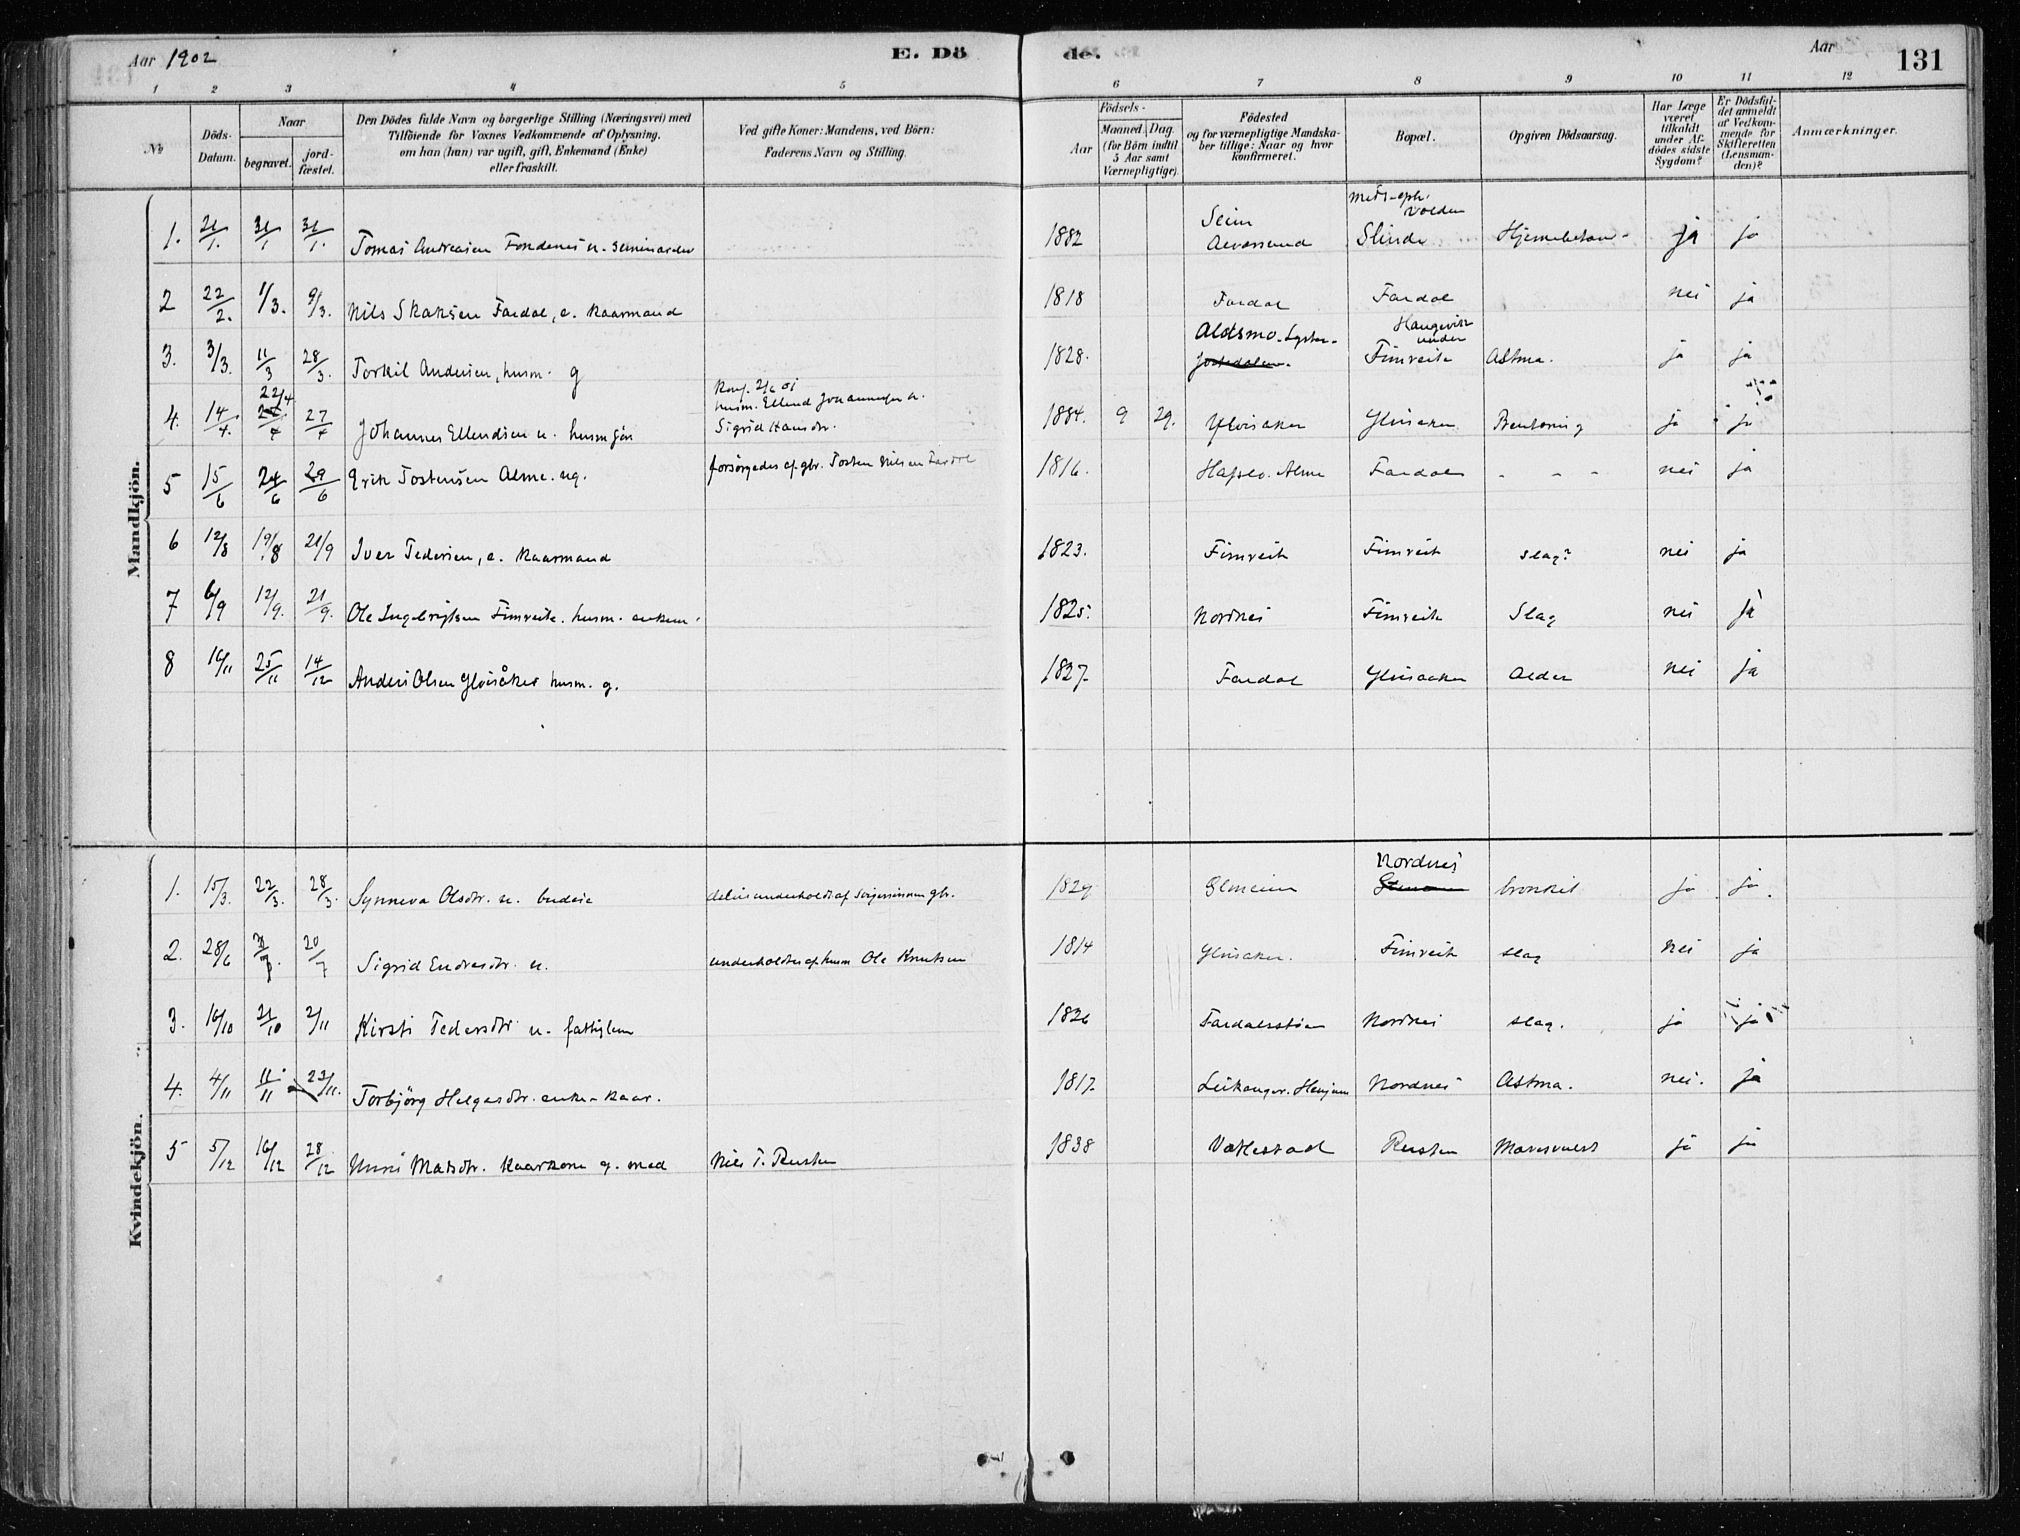 Aar 1902 E. Dö de. Aar 131
1 2 3 4 5 6 7 8 9 10 11 12
№
Döds-Datum.
Naar
begravet.
jord-fæstet.
Den Dödes fulde Navn og borgerlige Stilling (Næringsvei) med
Tilföiende for Voxnes Vedkommende af Oplysning,
om han (hun) var ugift, gift, Enkemand (Enke)
eller fraskilt.
Ved gifte Koner: Mandens, ved Börn:
Faderens Navn og Stilling.
Födsels-
Aar
Maaned. Dag.
(for Börn indtil
5 Aar samt
Værnepligtige).
Födested
og for værnepligtige Mandska-
ber tillige: Naar og hvor
konfirmeret.
Bopæl.
Opgiven Dödsaarsag.
Har Læge
været
tilkaldt
under Af-
dödes sidste
Sygdom?
Er Dödsfal-
det anmeldt
af Vedkom-
mende for
Skifteretten
(Lensman-
den)?
Anmærkninger.
Mandkjön.
1. 21/1. 31/1 31/1. Tomas Andreasen Fondenes u. seminarelev 1882 Seim Slinde ja ja
2 22/2. 1/3. 9/3. Nils Skaksen Fardal, e. kaarmand 1818 Fardal Fardal nei ja
3. 3/3. 11/3 28/3. Torkil Andersen, husm. g 1828. Aldsmo. Lyster. Jostedalen. Haugevik under Fimreite Astma. ja ja
4. 14/4. 22/4 27/4 Johannes Ellendsen u. husm.søn husm. Ellend Johannesen u. Sigrid Hansdr. 1884. 9 29. Ylvisaker Ylvisaker ja ja
5 15/6 24/6 29/6 Erik Tostensen Alme. ug. forsörgedes af gbr. Tosten Nilsen Fardal 1816. Hafslo. Alme Fardal - - - nei ja
6 12/8 19/8 21/9 Iver Pedersen, e. kaarmand 1823. Fimreite Fimreite slag? nei ja
7 6/9 12/9. 21/9. Ole Ingebrigtsen Fimreite. husm. enkem. 1825. Nordnes Fimreite Slag nei ja
8 16/11 25/11 14/12 Anders Olsen Ylvisåker husm. g. 1827. Fardal Ylvisaker Alder nei ja
Kvindekjön.
1. 15/3. 22/3. 28/3. Synneva Olsdtr. u. budeie 1829 Nordnes bronkit ja ja.
2. 28/6 20/7 Sigrid Endresdtr. u. underholdtes af husm Ole Knutsen 1814 Ylvisaker. Fimreite slag nei ja
3. 16/10 21/10 2/11 Kirsti Pedersdtr u. fattiglem 1826 Fardalsstöen Nordnes slag. ja ja
4. 4/11 11/11 23/11. Torbjörg Helgesdtr. enke-kaar. 1817 Leikanger. Henjum Nordnes Astma. nei. ja
5 5/12 16/12 28/12 Unni Matsdtr. kaarkone g. med Nils T. Rusten 1838 Vatlestad Rusten ja ja